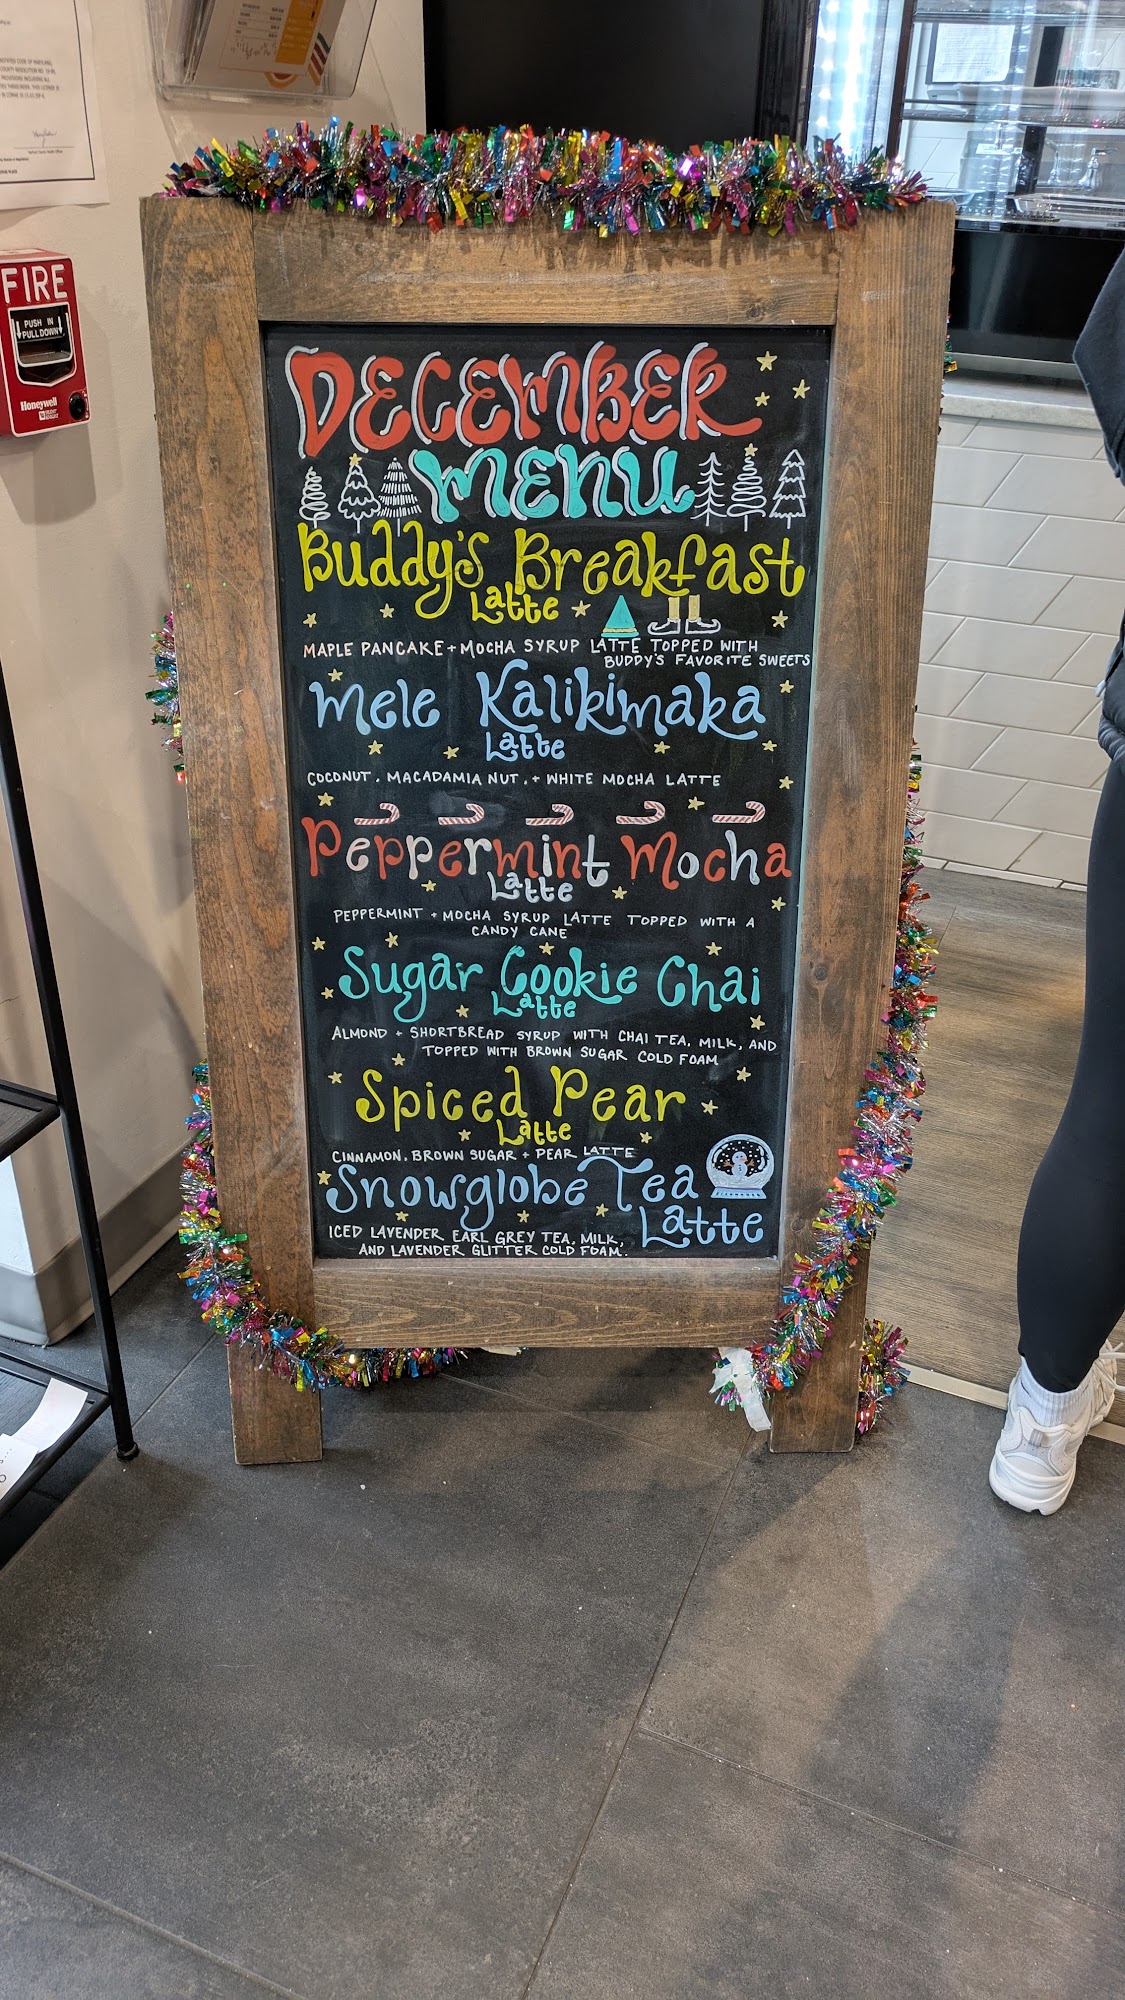 FIRE
PUSH IN
PULL DOWN
Honeywell
DECEMBER
MENU
Buddy's Breakfast
Latte
MAPLE PANCAKE + MOCHA SYRUP LATTE TOPPED WITH
BUDDY'S FAVORITE SWEETS
Mele Kalikimaka
Latte
COCONUT, MACADAMIA NUT, + WHITE MOCHA LATTE
Peppermint Mocha
Latte
PEPPERMINT + MOCHA SYRUP LATTE TOPPED WITH A
CANDY CANE
Sugar Cookie Chai
Latte
ALMOND + SHORTBREAD SYRUP WITH CHAI TEA, MILK, AND
TOPPED WITH BROWN SUGAR COLD FOAM
Spiced Pear
Latte
CINNAMON, BROWN SUGAR + PEAR LATTE
Snowglobe Tea
Latte
ICED LAVENDER EARL GREY TEA, MILK,
AND LAVENDER GLITTER COLD FOAM.